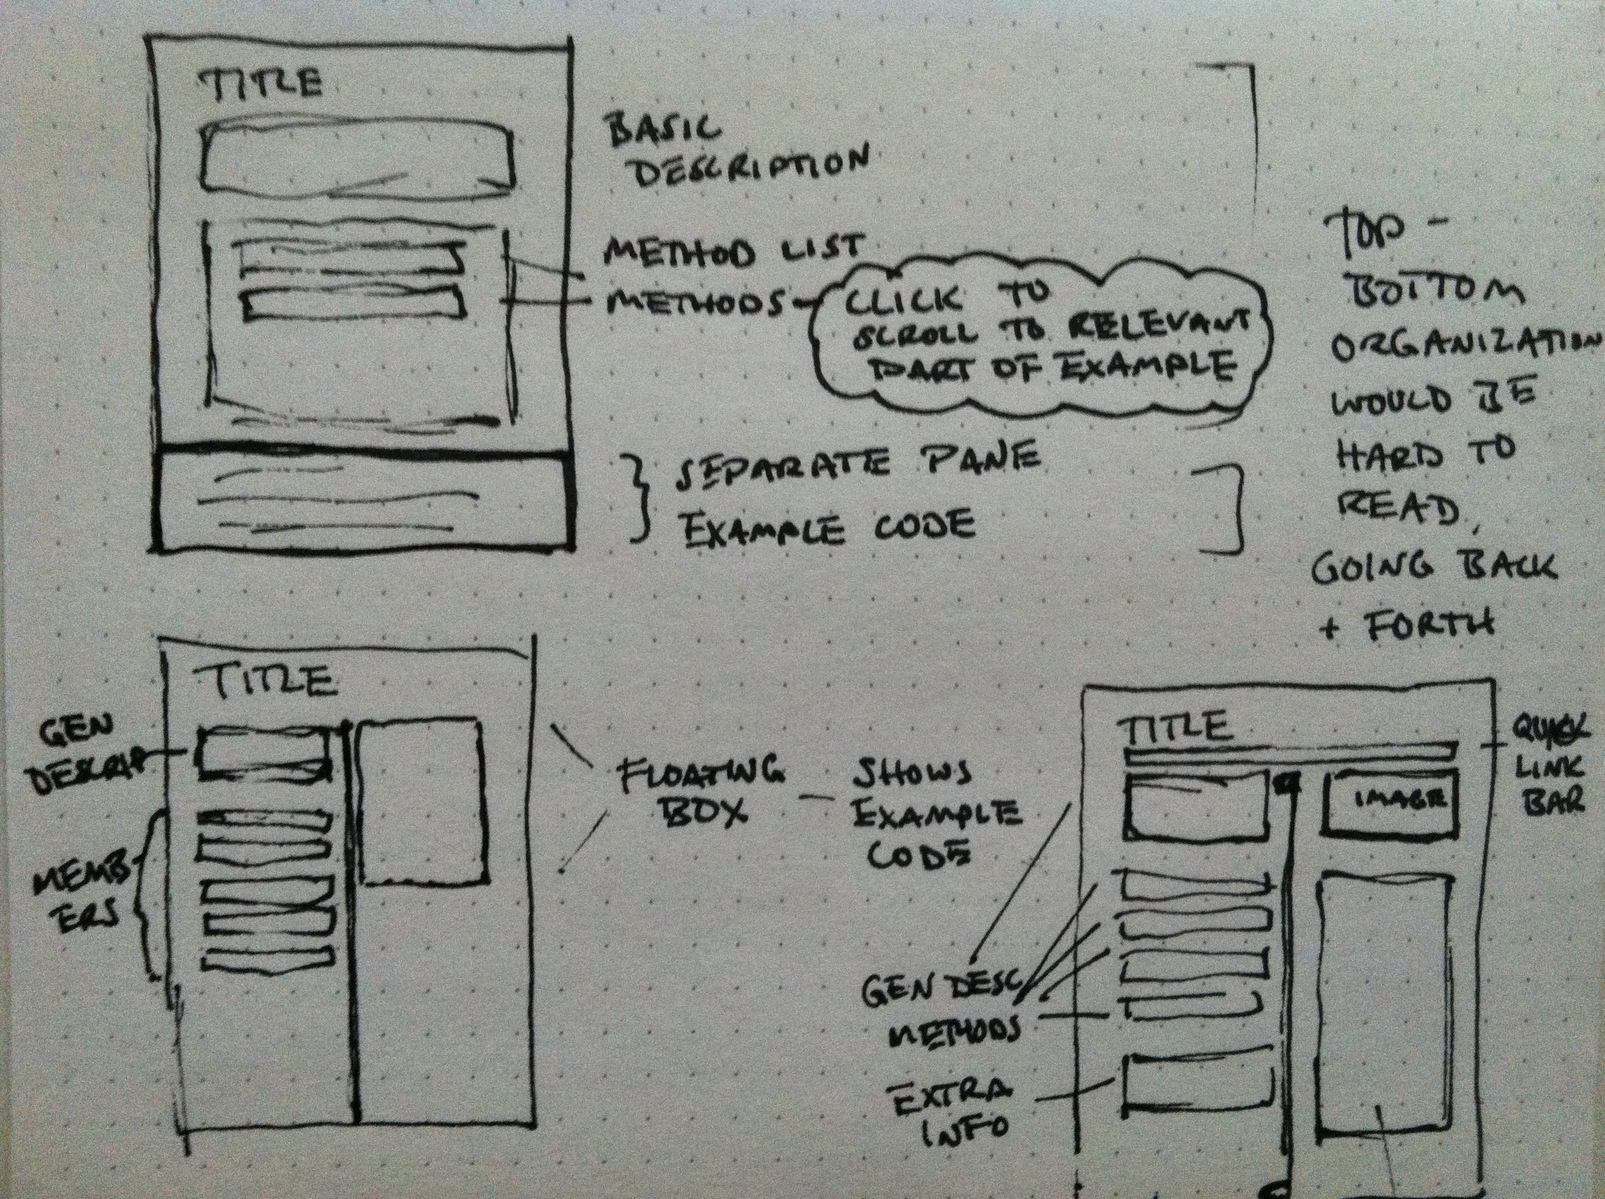 TITLE
BASIC
DESCRIPTION
METHOD LIST
METHODS
CLICK TO
SCROLL TO RELEVANT
PART OF EXAMPLE
SEPARATE PANE
EXAMPLE CODE
TOP -
BOTTOM
ORGANIZATION
WOULD BE
HARD TO
READ,
GOING BACK
+ FORTH
TITLE
GEN
DESCRIP
MEMB
ERS
FLOATING
BOX
SHOWS
EXAMPLE
CODE
TITLE
QUICK
LINK
BAR
IMAGE
GEN DESC
METHODS
EXTRA
INFO